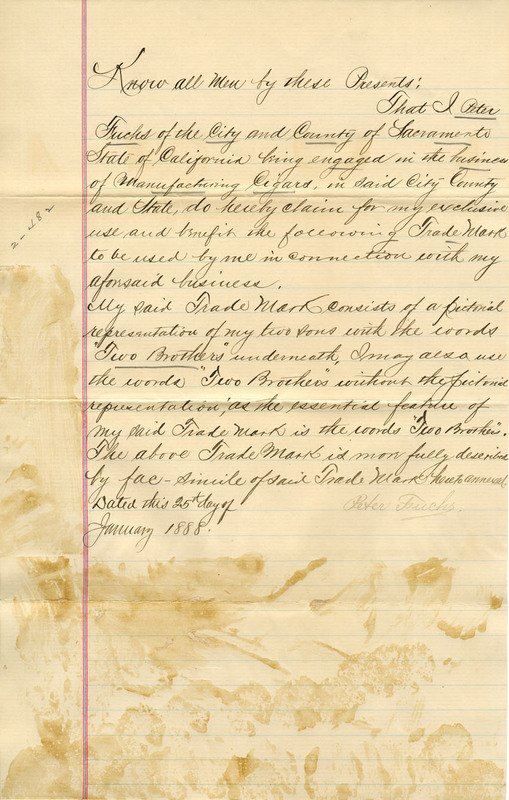 Know all Men by these Presents:
That I Peter
Fuchs of the City and County of Sacramento
State of California being engaged in the business
of Manufacturing Cigars, in said City County
and State, do hereby claim for my exclusive
use and benefit the following Trade Mark
to be used by me in connection with my
aforesaid business.
My said Trade Mark consists of a pictorial
representation of my two sons with the words
"Two Brothers" underneath, I may also use
the words "Two Brothers" without the pictorial
representation, as the essential feature of
my said Trade Mark is the words "Two Brothers".
The above Trade Mark is more fully described
by fac-simile of said Trade Mark hereto annexed.
Dated this 25th day of
Peter Fuchs.
January 1888.
2-482